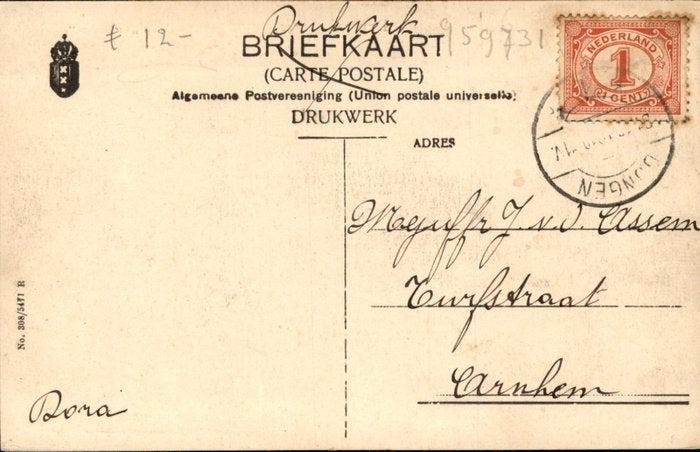 Drukwerk
£ 12-
959731
BRIEFKAART
(CARTE POSTALE)
Algemeene Postvereeniging (Union postale universelle)
DRUKWERK
ADRES
NEDERLAND
1
CENT
DONGEN
Mejuffr J. v. d. Assem
Turfstraat
Arnhem
Dora
No. 308/5471 R